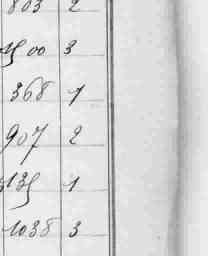 803 2
1500 3
368 1
907 2
135 1
1038 3